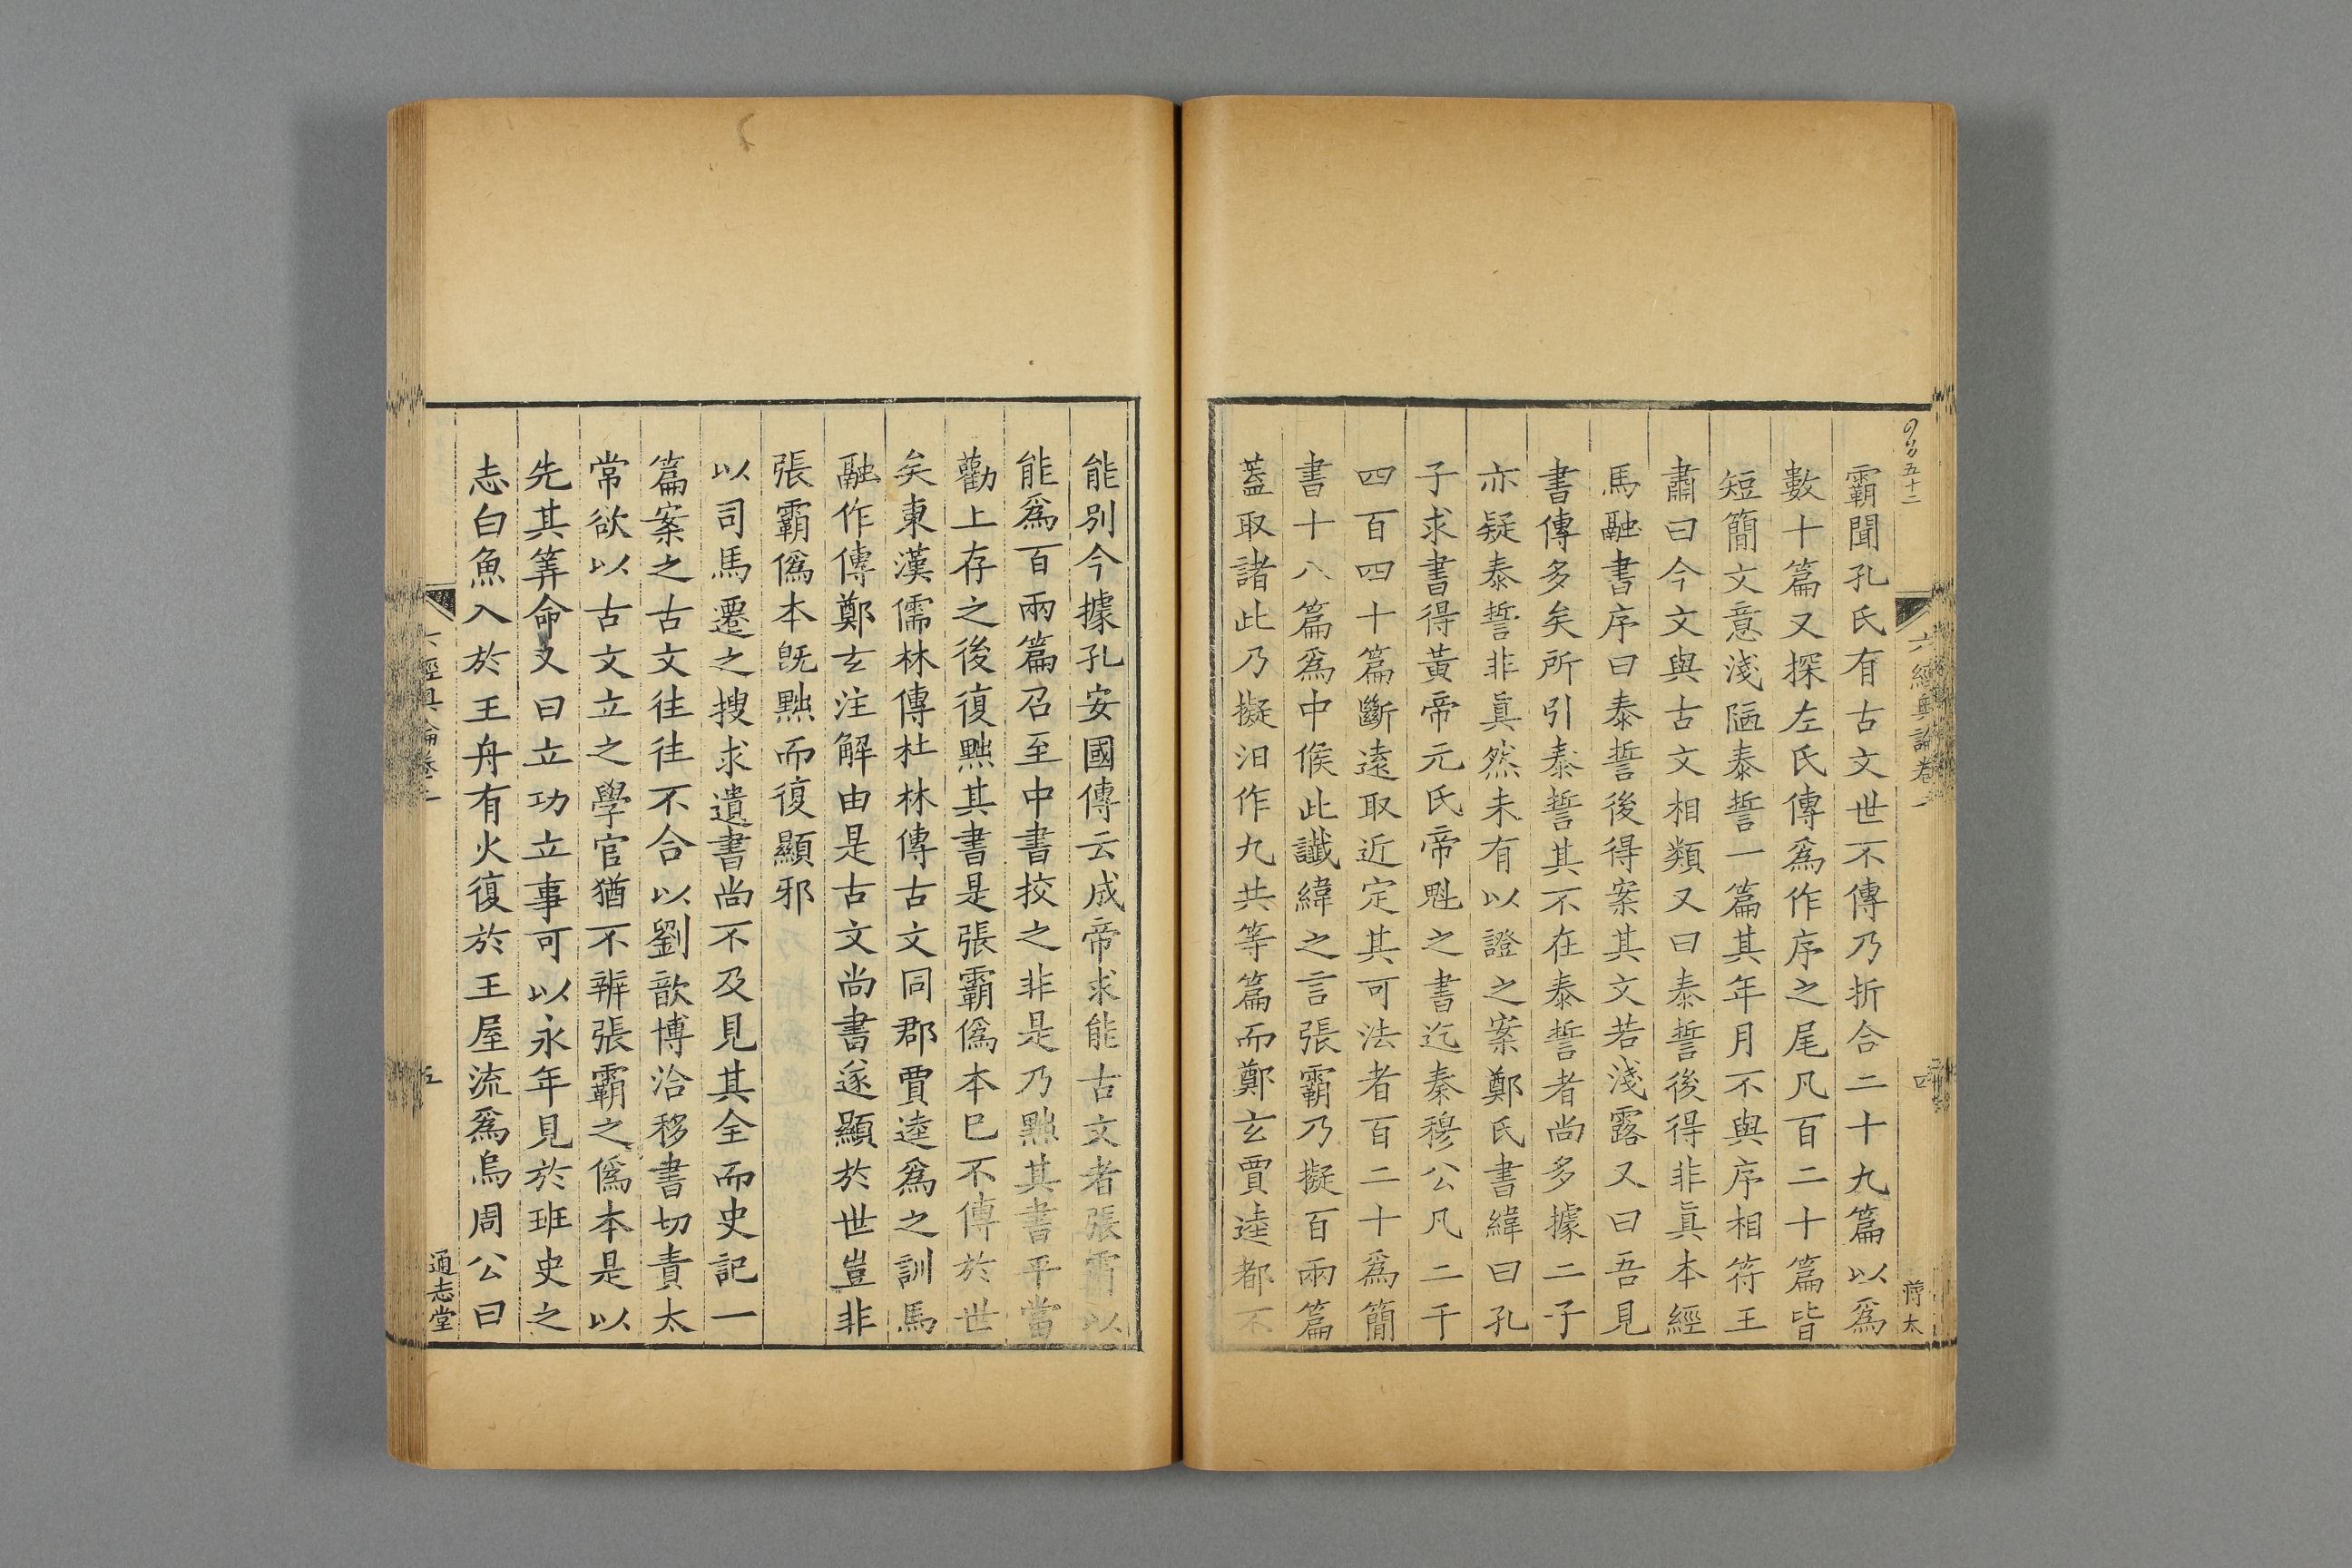 霸聞孔氏有古文世不傳乃折合二十九篇以爲
數十篇又探左氏傳爲作序之尾凡百二十篇皆
短簡文意淺陋泰誓一篇其年月不與序相符王
肅曰今文與古文相類又曰泰誓後得非眞本經
馬融書序曰泰誓後得案其文若淺露又曰吾見
書傳多矣所引泰誓其不在泰誓者尚多據二子
亦疑泰誓非眞然未有以證之案鄭氏書緯曰孔
子求書得黃帝元氏帝魁之書迄秦穆公凡二千
四百四十篇斷遠取近定其可法者百二十爲簡
書十八篇爲中候此讖緯之言張霸乃擬百兩篇
蓋取諸此乃擬汨作九共等篇而鄭玄賈逵都不
能別今據孔安國傳云成帝求能古文者張霸以
能爲百兩篇召至中書挍之非是乃黜其書平當
勸上存之後復黜其書是張霸僞本巳不傳於世
矣東漢儒林傳杜林傳古文同郡賈逵爲之訓馬
融作傳鄭玄注解由是古文尚書遂顯於世豈非
張霸僞本旣黜而復顯邪
以司馬遷之搜求遺書尚不及見其全而史記一
篇案之古文往往不合以劉歆博洽移書切責太
常欲以古文立之學官猶不辨張霸之僞本是以
先其筭命又曰立功立事可以永年見於班史之
志白魚入於王舟有火復於王屋流爲烏周公曰
六經奧論卷
五
通志堂